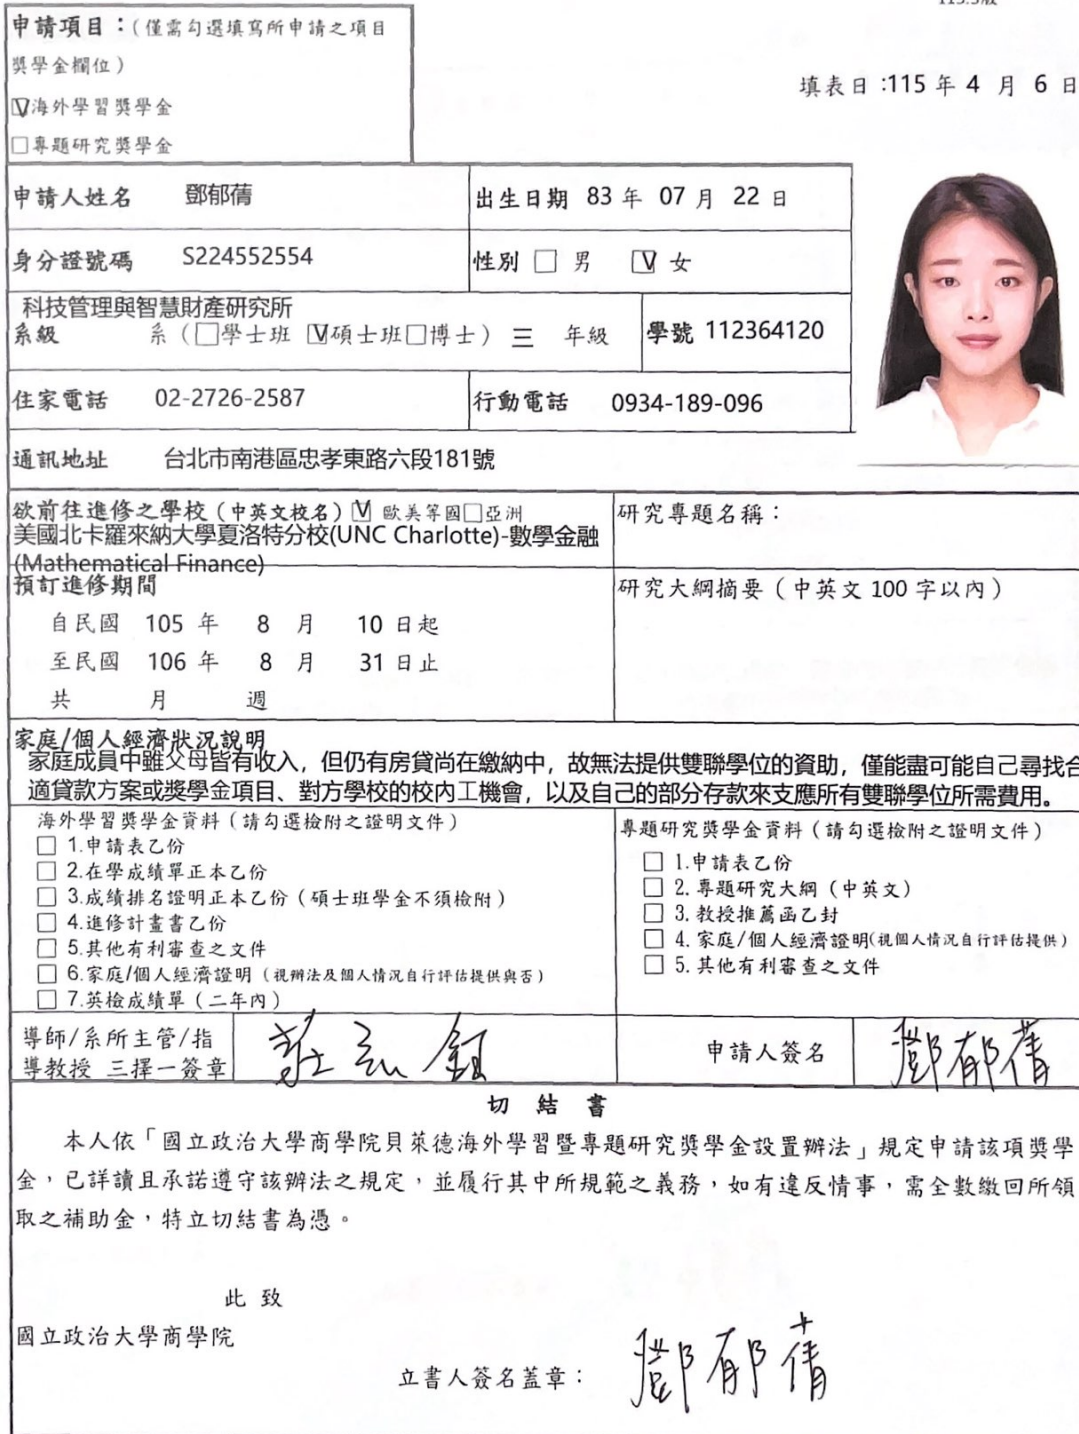 115.3版
申請項目：(僅需勾選填寫所申請之項目
獎學金欄位)
填表日:115 年 4 月 6 日
V海外學習獎學金
□專題研究獎學金
申請人姓名 鄧郁蒨 出生日期 83 年 07 月 22 日
身分證號碼 S224552554 性別 □ 男 V 女
科技管理與智慧財產研究所
系級 系（□學士班 V碩士班□博士）三 年級 學號 112364120
住家電話 02-2726-2587 行動電話 0934-189-096
通訊地址 台北市南港區忠孝東路六段181號
欲前往進修之學校（中英文校名）V 歐美等國□亞洲 研究專題名稱：
美國北卡羅來納大學夏洛特分校(UNC Charlotte)-數學金融
(Mathematical Finance)
預訂進修期間 研究大綱摘要（中英文 100 字以內）
自民國 105 年 8 月 10 日起
至民國 106 年 8 月 31 日止
共 月 週
家庭/個人經濟狀況說明
家庭成員中雖父母皆有收入，但仍有房貸尚在繳納中，故無法提供雙聯學位的資助，僅能盡可能自己尋找合
適貸款方案或獎學金項目、對方學校的校內工機會，以及自己的部分存款來支應所有雙聯學位所需費用。
海外學習獎學金資料（請勾選檢附之證明文件）
□ 1.申請表乙份
□ 2.在學成績單正本乙份
□ 3.成績排名證明正本乙份（碩士班學金不須檢附）
□ 4.進修計畫書乙份
□ 5.其他有利審查之文件
□ 6.家庭/個人經濟證明（視辦法及個人情況自行評估提供與否）
□ 7.英檢成績單（二年內）
專題研究獎學金資料（請勾選檢附之證明文件）
□ 1.申請表乙份
□ 2.專題研究大綱（中英文）
□ 3.教授推薦函乙封
□ 4.家庭/個人經濟證明(視個人情況自行評估提供)
□ 5.其他有利審查之文件
導師/系所主管/指
導教授 三擇一簽章
申請人簽名 鄧郁蒨
切 結 書
本人依「國立政治大學商學院貝萊德海外學習暨專題研究獎學金設置辦法」規定申請該項獎學
金，已詳讀且承諾遵守該辦法之規定，並履行其中所規範之義務，如有違反情事，需全數繳回所領
取之補助金，特立切結書為憑。
此 致
國立政治大學商學院
立書人簽名蓋章： 鄧郁蒨